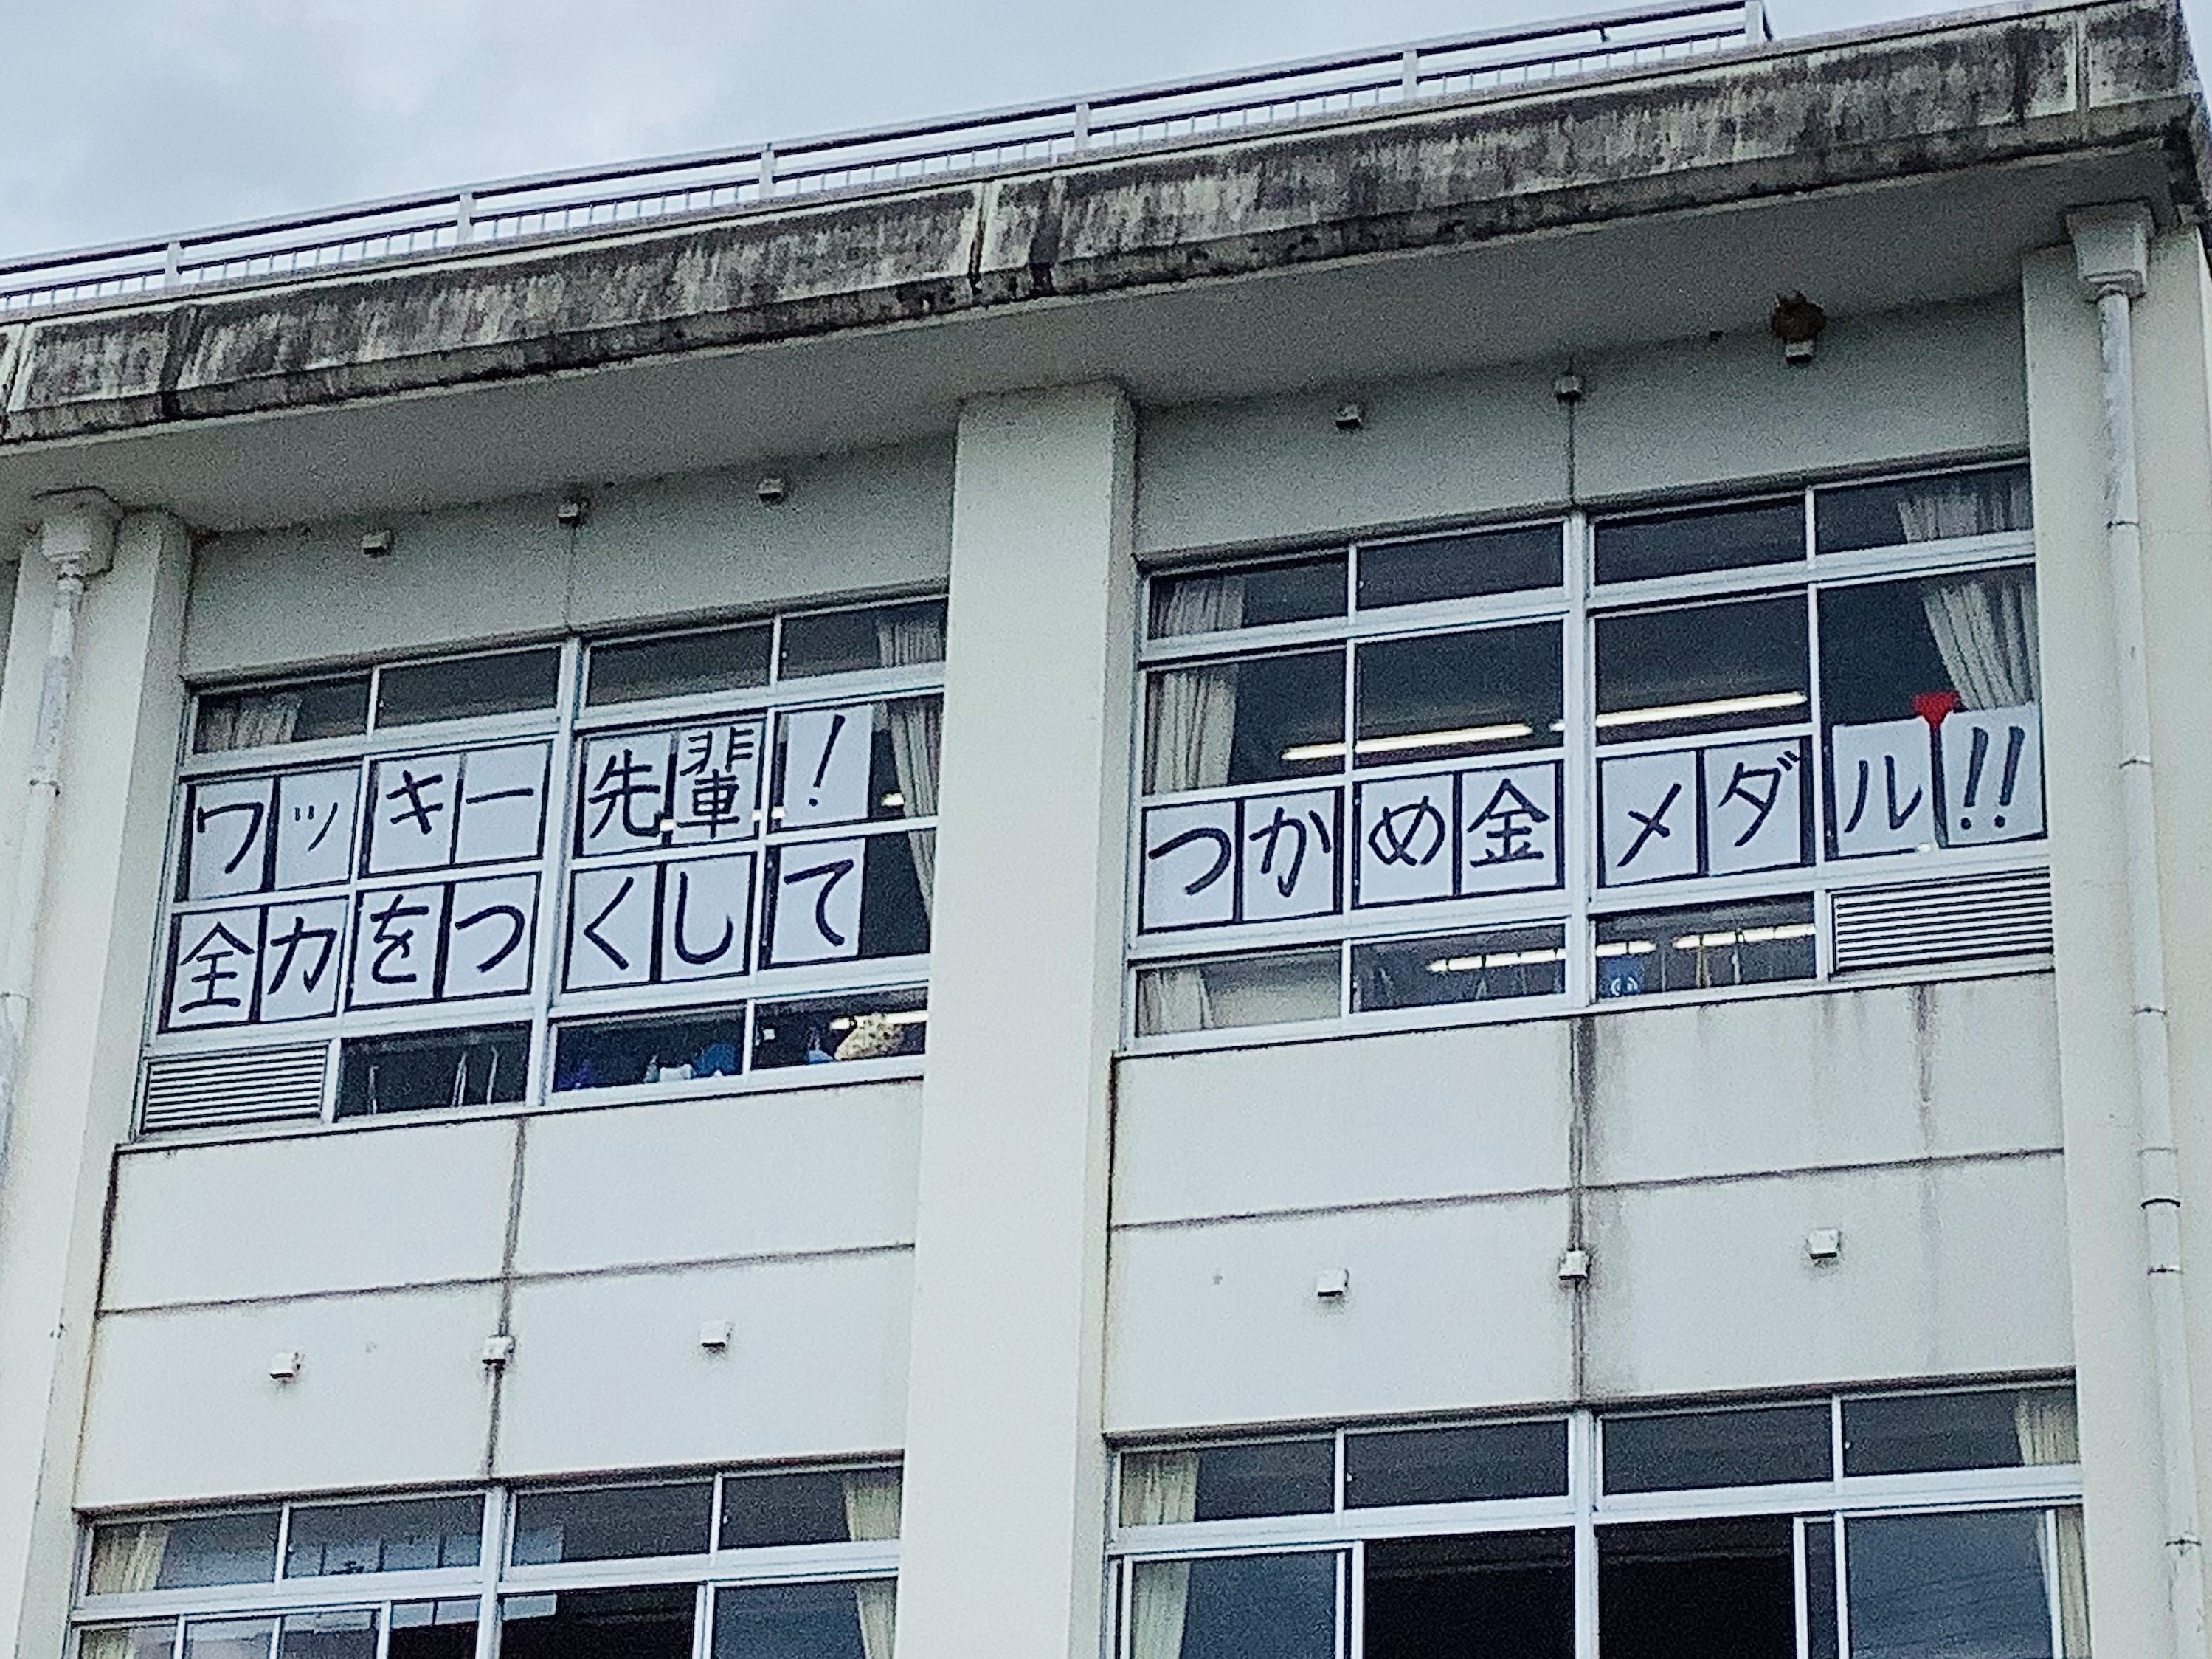 ワッキー先輩!
全力をつくして
つかめ金メダル!!